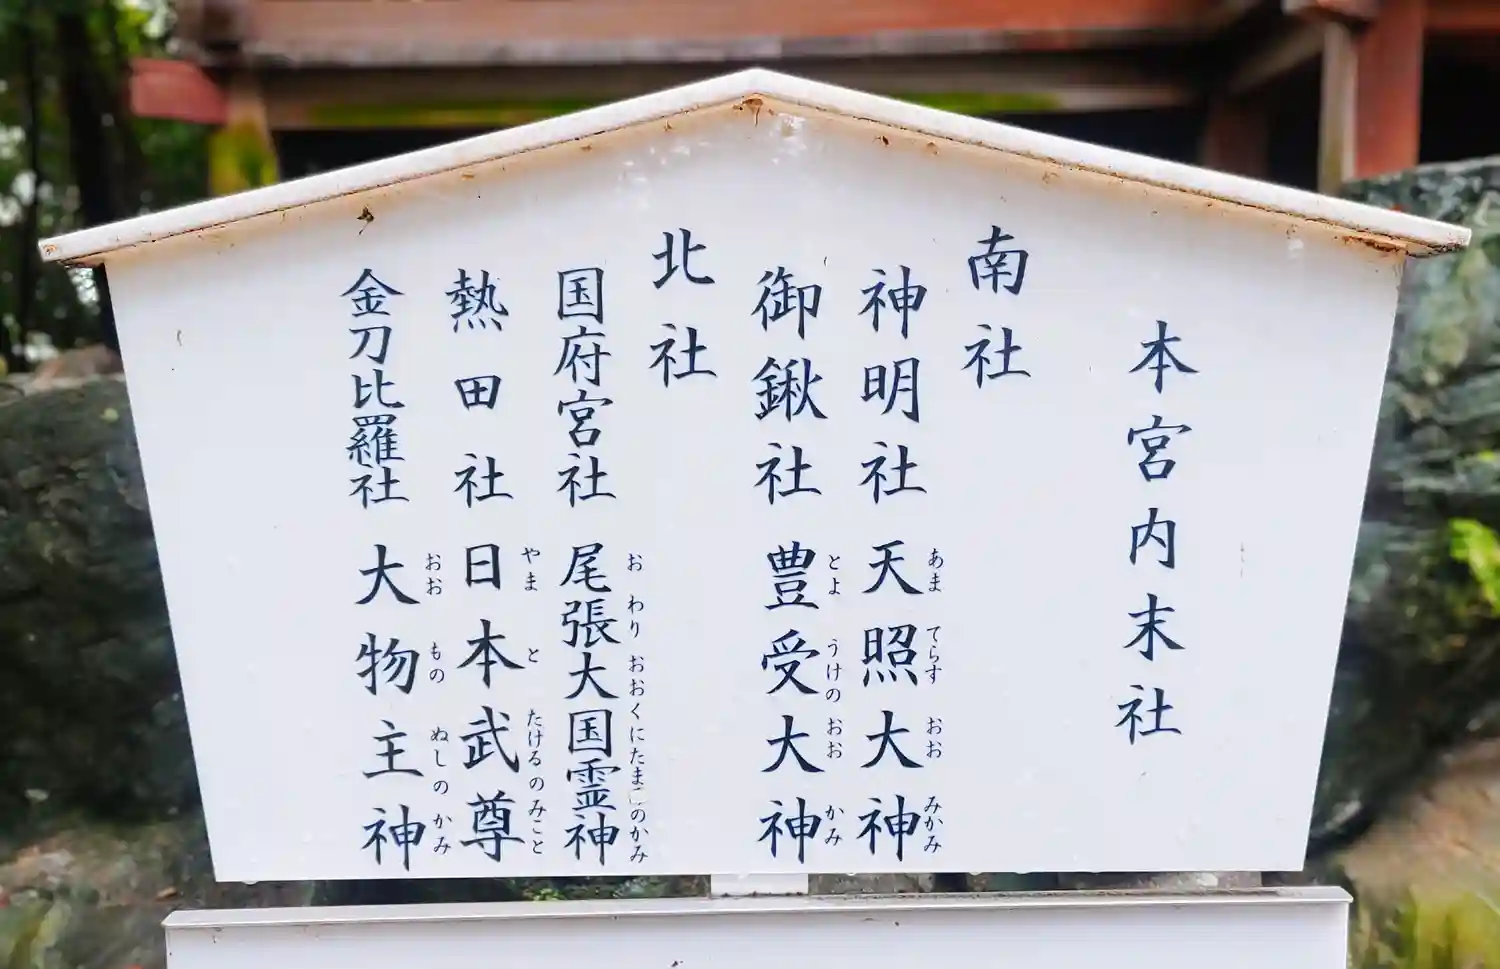 本宮内末社
南社
神明社 天照大神
あま てらす おお みかみ
御鍬社 豊受大神
とよ うけの おお かみ
北社
国府宮社 尾張大国霊神
お わり おおくにたまのかみ
熱田社 日本武尊
やま と たけるの みこと
金刀比羅社 大物主神
おお もの ぬしの かみ